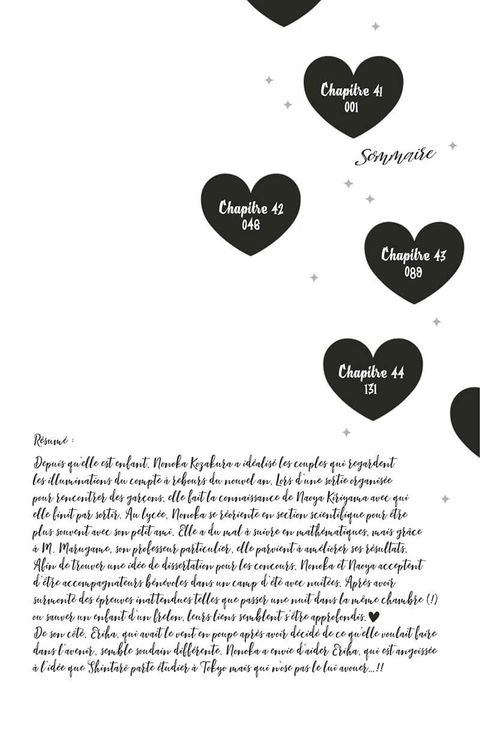 Chapitre 41
001
Sommaire
Chapitre 42
046
Chapitre 43
089
Chapitre 44
131
Résumé :
Depuis qu'elle est enfant, Nonoka Kozakura a idéalisé les couples qui regardent
les illuminations du compte à rebours du nouvel an. Lors d'une sortie organisée
pour rencontrer des garçons, elle fait la connaissance de Naoya Kiriyama avec qui
elle finit par sortir. Au lycée, Nonoka se réoriente en section scientifique pour être
plus souvent avec son petit ami. Elle a du mal à suivre en mathématiques, mais grâce
à M. Marugame, son professeur particulier, elle parvient à améliorer ses résultats.
Afin de trouver une idée de dissertation pour les concours, Nonoka et Naoya acceptent
d'être accompagnateurs bénévoles dans un camp d'été avec nuitées. Après avoir
surmonté des épreuves inattendues telles que passer une nuit dans la même chambre (!)
ou sauver un enfant d'un frelon, leurs liens semblent s'être approfondis.♥
De son côté, Eriha, qui avait le vent en poupe après avoir décidé de ce qu'elle voulait faire
dans l'avenir, semble soudain différente. Nonoka a envie d'aider Eriha, qui est angoissée
à l'idée que Shintarô parte étudier à Tokyo mais qui n'ose pas le lui avouer...!!